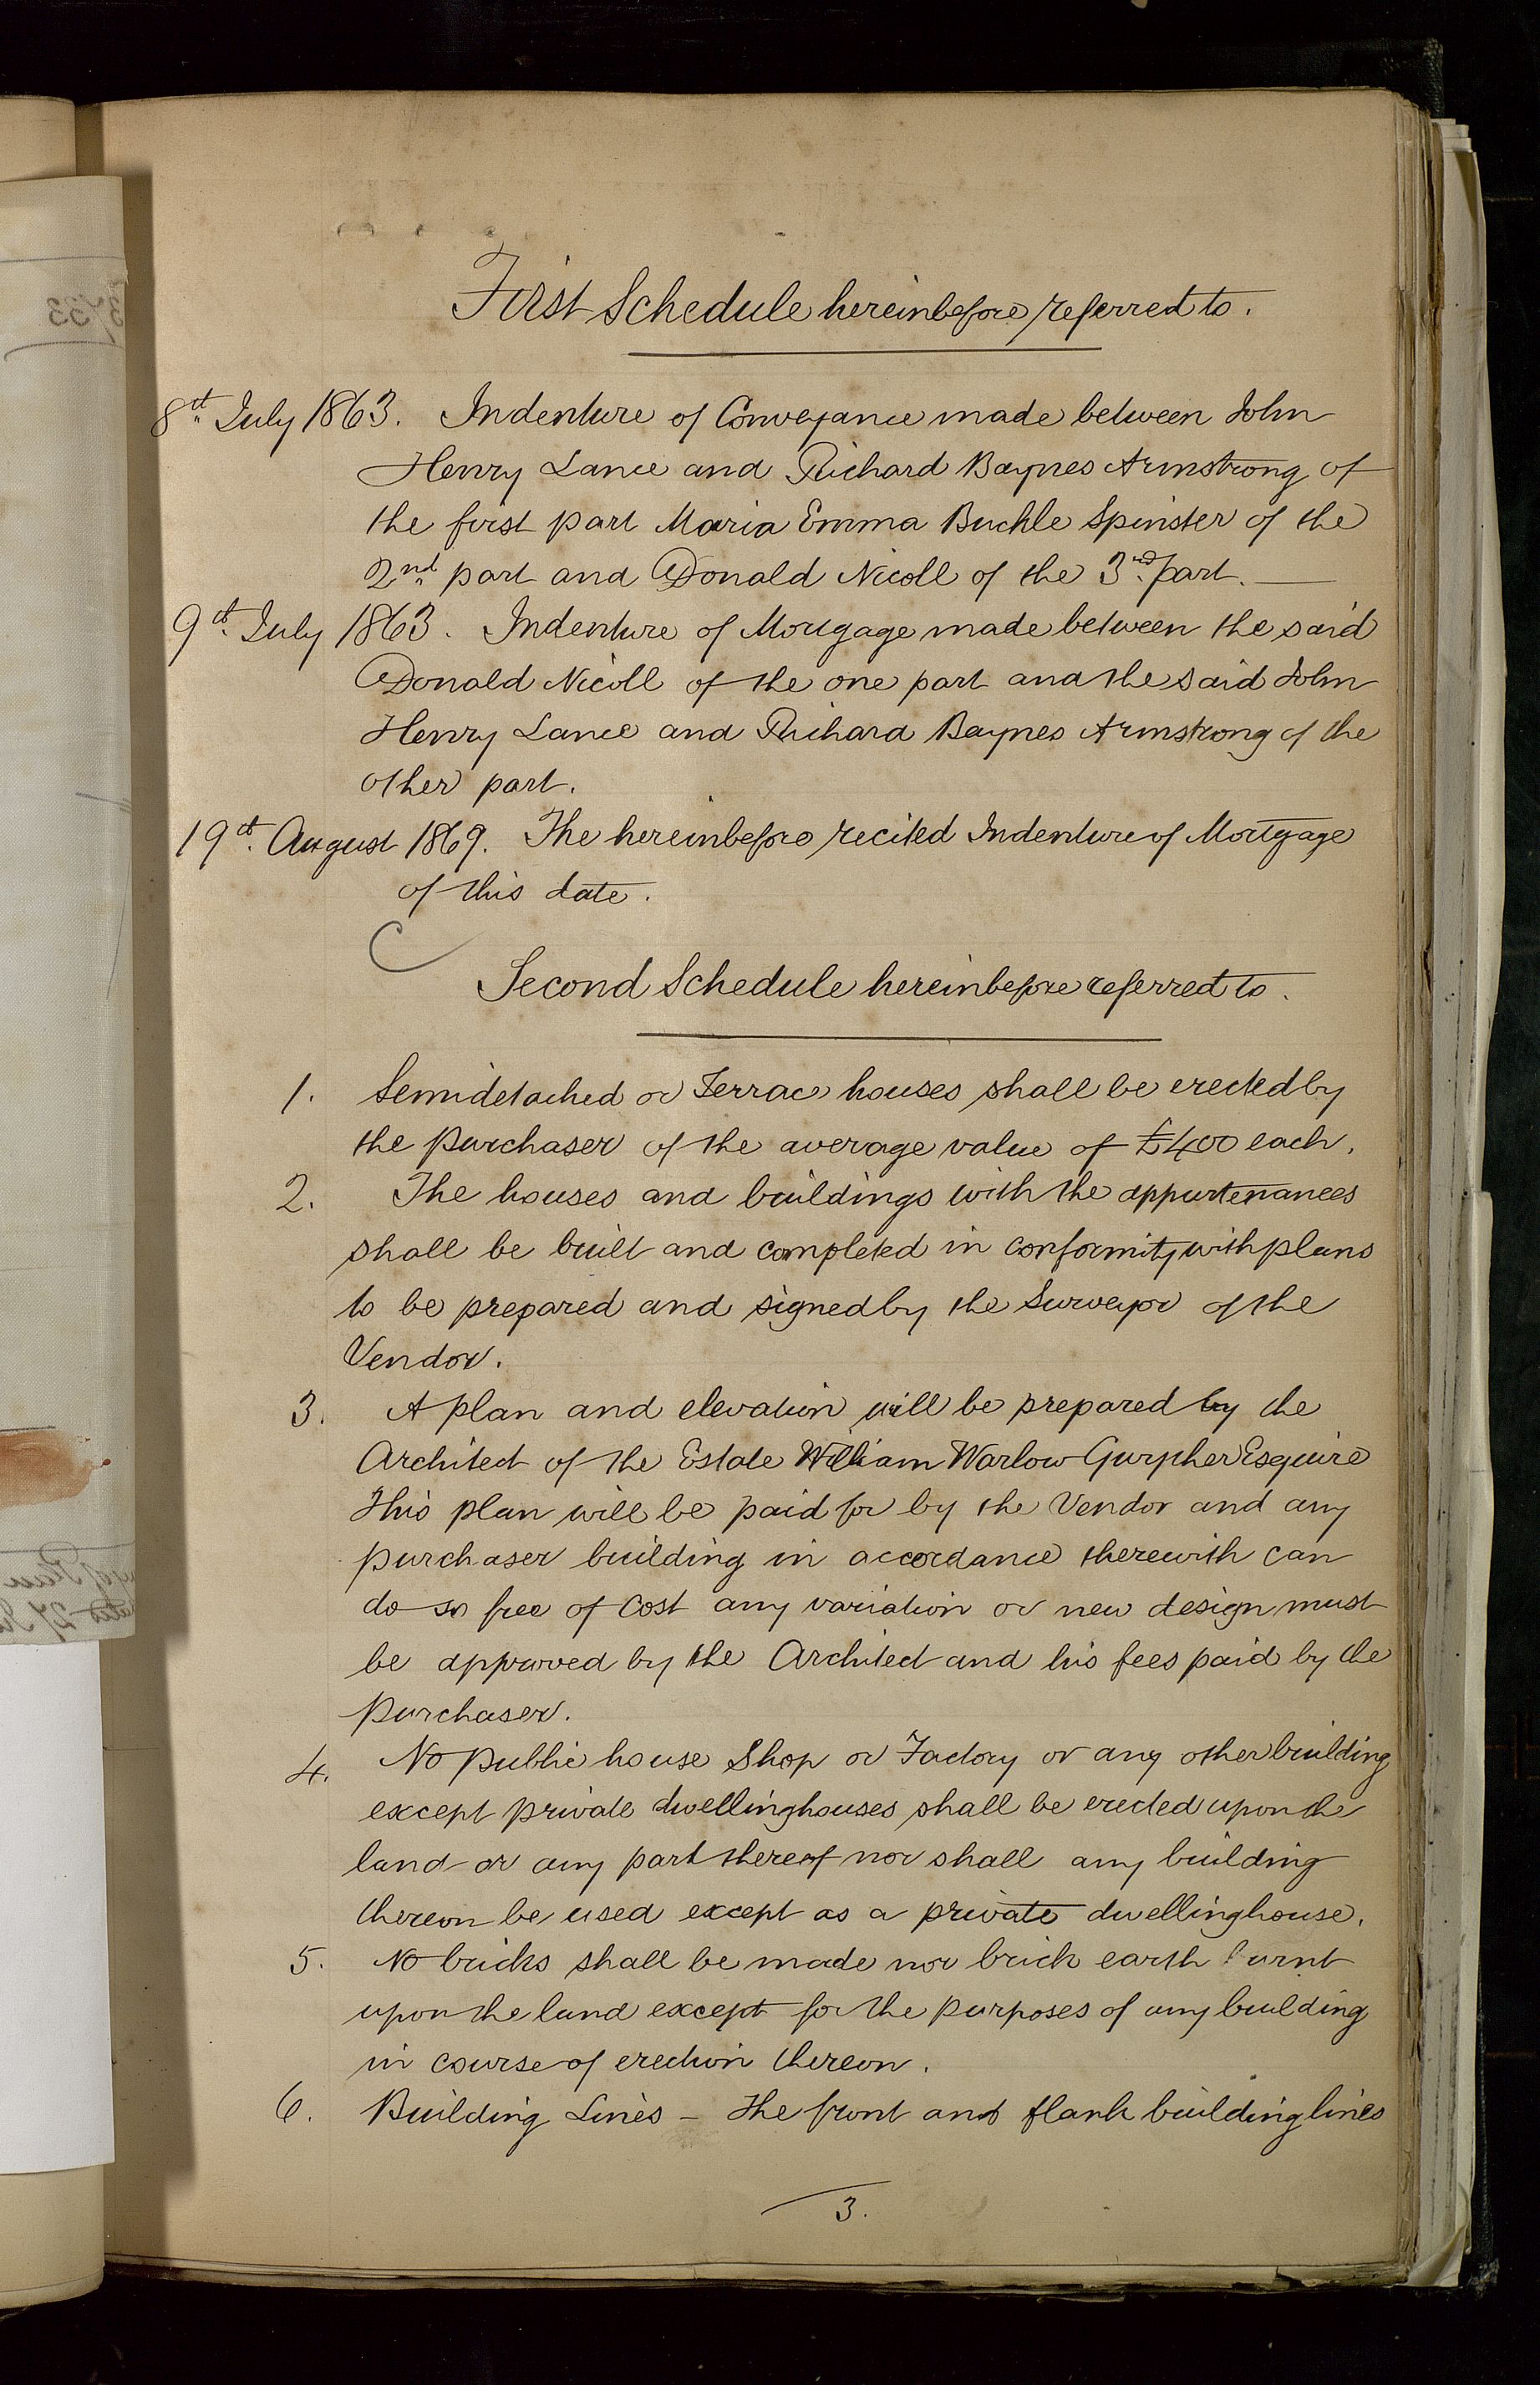 First Schedule hereinbefore referred to.
8th July 1863. Indenture of Conveyance made between John
Henry Lance and Richard Baynes Armstrong of
the first part Maria Emma Buckle Spinster of the
2nd part and Donald Nicoll of the 3rd part.
9th July 1863. Indenture of Mortgage made between the said
Donald Nicoll of the one part and the said John
Henry Lance and Richard Baynes Armstrong of the
other part.
19th August 1869. The hereinbefore recited Indenture of Mortgage
of this date.
Second Schedule hereinbefore referred to.
1. Semidetached or Terrace houses shall be erected by
the purchaser of the average value of £400 each.
2. The houses and buildings with the appurtenances
shall be built and completed in conformity with plans
to be prepared and signed by the Surveyor of the
Vendor.
3. A plan and elevation will be prepared by the
Architect of the Estate William Warlow Esquire
This plan will be paid for by the Vendor and any
purchaser building in accordance therewith can
do so free of cost any variation or new design must
be approved by the Architect and his fees paid by the
purchaser.
4. No public house Shop or Factory or any other building
except private dwellinghouses shall be erected upon the
land or any part thereof nor shall any building
thereon be used except as a private dwellinghouse.
5. No bricks shall be made nor brick earth burnt
upon the land except for the purposes of any building
in course of erection thereon.
6. Building Lines - The front and flank building lines
3.